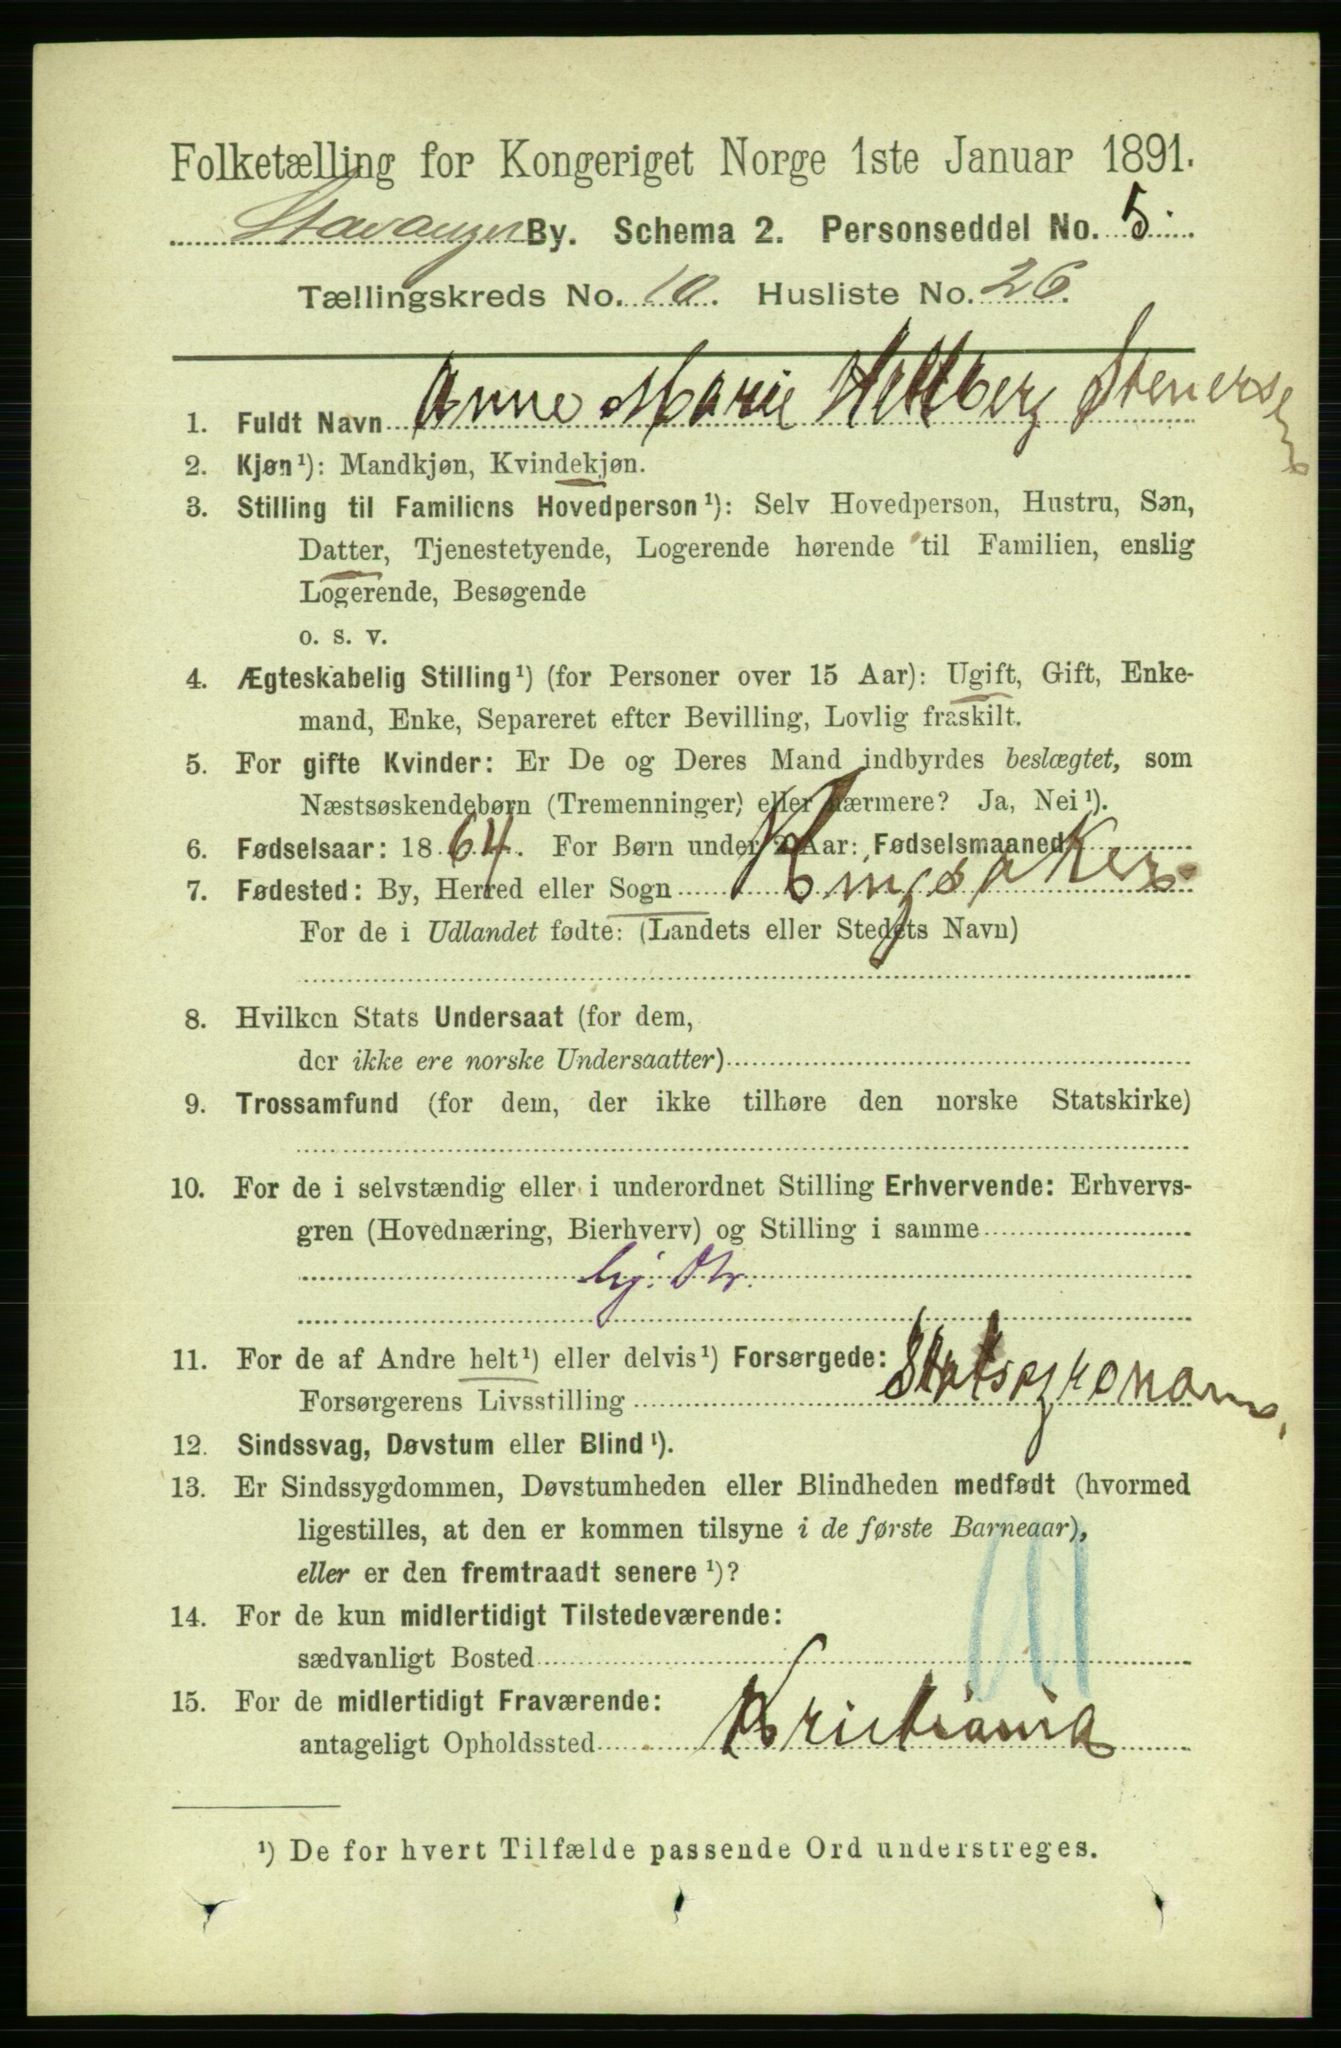 Folketælling for Kongeriget Norge 1ste Januar 1891.
Stavanger By. Schema 2. Personseddel No. 5.
Tællingskreds No. 10. Husliste No. 26.
1. Fuldt Navn Anne Marie Hettberg Stenersen
2. Kjøn¹): Mandkjøn, Kvindekjøn.
3. Stilling til Familiens Hovedperson¹): Selv Hovedperson, Hustru, Søn,
Datter, Tjenestetyende, Logerende hørende til Familien, enslig
Logerende, Besøgende
o. s. v.
4. Ægteskabelig Stilling¹) (for Personer over 15 Aar): Ugift, Gift, Enke-
mand, Enke, Separeret efter Bevilling, Lovlig fraskilt.
5. For gifte Kvinder: Er De og Deres Mand indbyrdes beslægtet, som
Næstsøskendebørn (Tremenninger) eller nærmere? Ja, Nei¹).
6. Fødselsaar: 1864. For Børn under 2 Aar: Fødselsmaaned
7. Fødested: By, Herred eller Sogn Ringsaker
For de i Udlandet fødte: (Landets eller Stedets Navn)
8. Hvilken Stats Undersaat (for dem,
der ikke ere norske Undersaatter)
9. Trossamfund (for dem, der ikke tilhøre den norske Statskirke)
10. For de i selvstændig eller i underordnet Stilling Erhvervende: Erhvervs-
gren (Hovednæring, Bierhverv) og Stilling i samme
hj. Dtr.
11. For de af Andre helt¹) eller delvis¹) Forsørgede:
Forsørgerens Livsstilling Statsagronom,
12. Sindssvag, Døvstum eller Blind¹).
13. Er Sindssygdommen, Døvstumheden eller Blindheden medfødt (hvormed
ligestilles, at den er kommen tilsyne i de første Barneaar),
eller er den fremtraadt senere¹)?
14. For de kun midlertidigt Tilstedeværende:
sædvanligt Bosted
15. For de midlertidigt Fraværende:
antageligt Opholdssted Kristiania
¹) De for hvert Tilfælde passende Ord understreges.